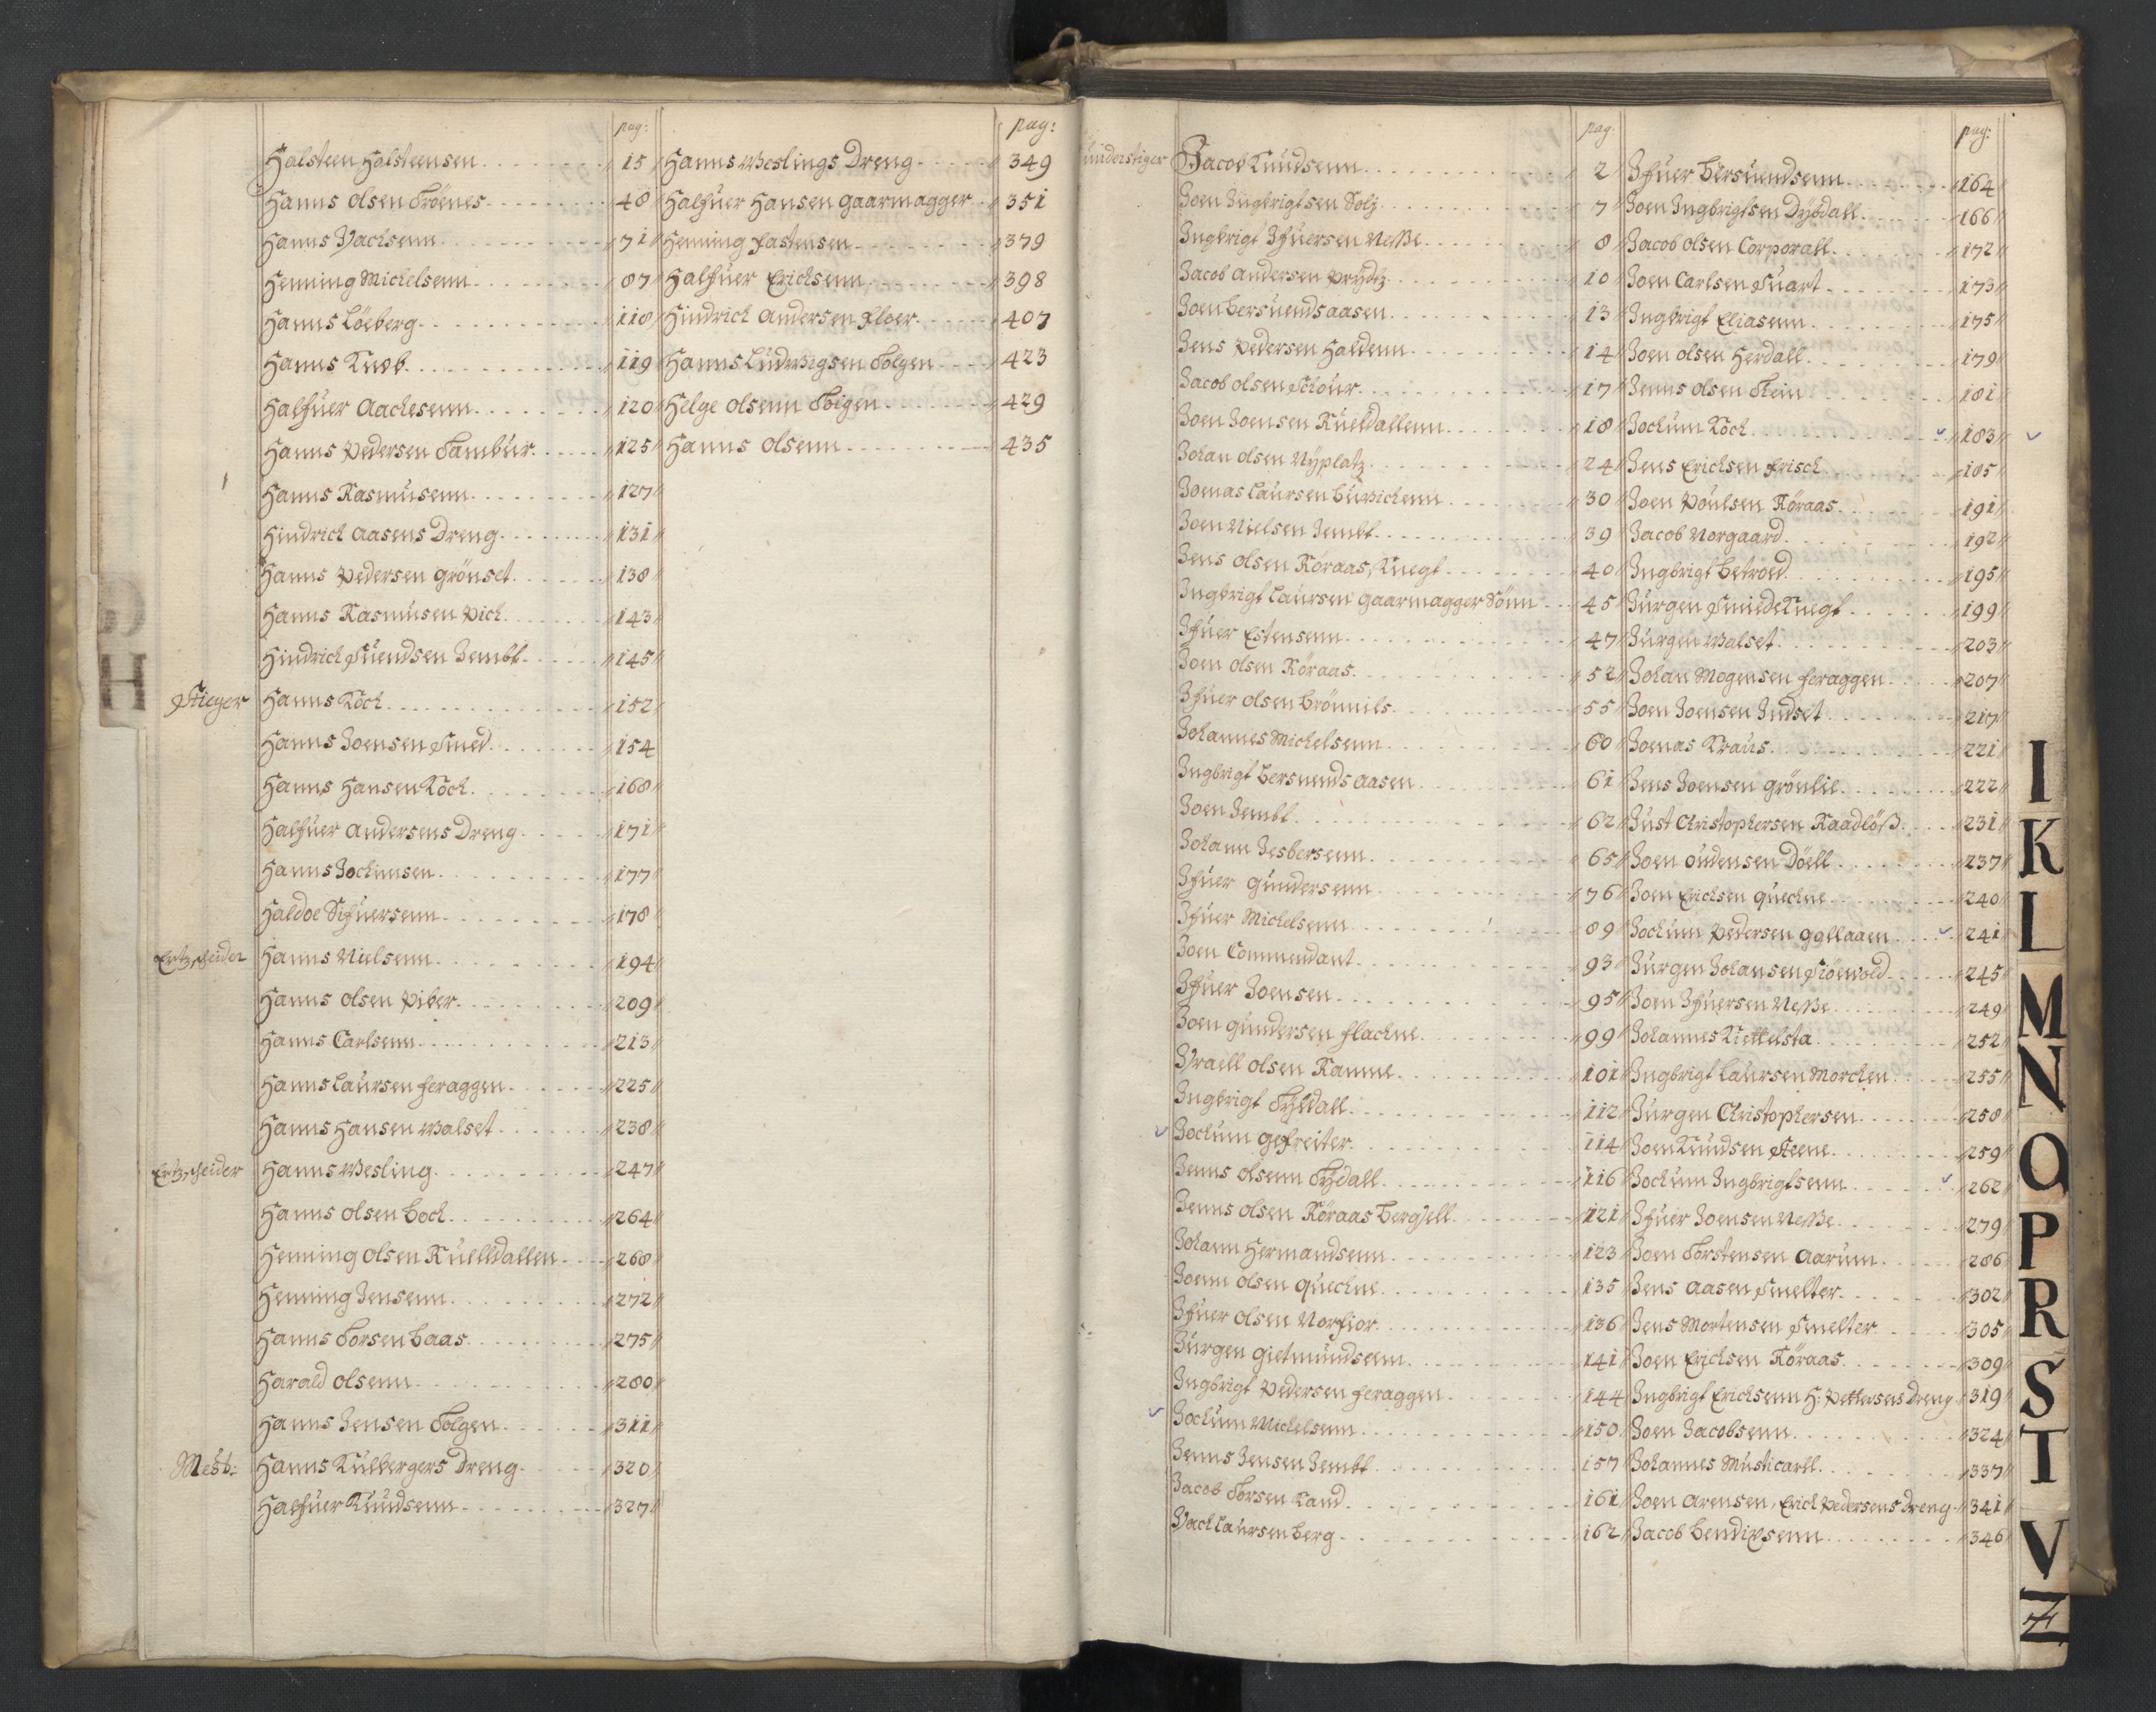 pag:
Halsteen Halsteensen 15
Hanns Olsen Trönes 48
Hanns Isachsenn 71
Henning Michelsenn 87
Hanns Löeberg 118
Hanns Knob 119
Halfuer Aachesenn 120
Hanns Pedersen Tambur 125
Hanns Rasmusenn 127
Hindrich Aasens Dreng 131
Hanns Pedersen Grönset 138
Hanns Rasmusen Pich 143
Hindrich Suendsen Jembt 145
Stieger Hanns Koch 152
Hanns Joensen Smed 154
Hanns Hansen Koch 168
Halfuer Andersens Dreng 171
Hanns Jochimsen 177
Haldoe Sifuersenn 178
Ertzscheider Hanns Nielsenn 194
Hanns Olsen Piber 209
Hanns Carlsenn 213
Hanns Laursen Feraggen 225
Hanns Hansen Walset 238
Ertzscheider Hanns Wesling 247
Hanns Olsen Bock 264
Henning Olsen Kuelldallen 268
Henning Jensenn 272
Hanns Torsen Baas 275
Harald Olsenn 280
Hanns Jensen Tolgen 311
Mest: Hanns Kulbergers Dreng 320
Halfuer Knudsenn 327
pag:
Hanns Weslings Dreng 349
Halfuer Hansen Gaarmagger 351
Henning Fastensen 379
Halfuer Erichsenn 398
Hindrich Andersen Floer 407
Hanns Ludwigsen Tolgen 423
Helge Olsenn Tolgen 429
Hanns Olsenn 435
pag:
understiger Jacob Knudsenn 2
Joen Ingbrigtsen Solj 7
Ingbrigt Ifuersen Neße 8
Jacob Andersen Prydtz 10
Joen Bersuendsaasen 13
Jens Pedersen Haldenn 14
Jacob Olsen Schour 17
Joen Joensen Kueldallenn 18
Johan Olsen Nyplatz 24
Joenas Laursen Buwichenn 30
Joen Nielsen Jembt 39
Jens Olsen Röraas, Knegt 40
Ingbrigt Laursen Gaarmagger Sönn 45
Ifuer Estensenn 47
Joen Olsen Röraas 52
Ifuer Olsen Brönnils 55
Johannes Michelsenn 60
Ingbrigt Bersuends Aasen 61
Joen Jembt 62
Johann Jesbersenn 65
Ifuer Gundersenn 76
Ifuer Michelsenn 89
Joen Commendant 93
Ifuer Joensen 95
Joen Gundersen Flachne 99
Israell Olsen Ramne 101
Ingbrigt Tydall 112
Jochum Gefreiter 114
Jenns Olsenn Tydall 116
Jenns Olsen Röraas Bergsell 121
Johann Hermandsenn 123
Joenn Olsen Quechne 135
Ifuer Olsen Norfior 136
Jürgen Gietmundseenn 141
Ingbrigt Pedersen Feraggen 144
Jochum Michelsenn 150
Jenns Jensen Jembt 157
Jacob Torsen Rand 161
Isach Laursen Berg 162
pag:
Ifuer Bersuendsenn 164
Joen Ingbrigtsen Dybdall 166
Jacob Olsen Corporall 172
Joen Carlsen Suart 173
Ingbrigt Eliasenn 175
Joen Olsen Herdall 179
Jenns Olsen Stein 181
Jochum Koch 183
Jens Erichsen Frisch 185
Joen Poulsen Röraas 191
Jacob Norgaard 192
Ingbrigt Betroed 195
Jürgen Smiede Knegt 199
Jürgen Walset 203
Johan Mogensen Feraggen 207
Joen Joensen Indset 217
Joenas Kraus 221
Jens Joensen Grönlie 222
Just Christophersen Raadlöß 231
Joen Oudensen Döell 237
Joen Erichsen Quechne 240
Jochum Pedersen Gallaaen 241
Jürgen Johansen Siöewold 245
Joen Ifuersen Neße 249
Johannes Kiettelsta 252
Ingbrigt Laursen Morchen 255
Jürgen Christophersen 258
Joen Knudsen Steene 259
Jochum Ingbrigtsenn 262
Ifuer Joensen Neße 279
Joen Torstensen Aarum 286
Jens Aasen Smelter 302
Jens Mortensen Smelter 305
Joen Erichsen Röraas 309
Ingbrigt Erichsenn H: Pettersens Dreng 319
Joen Jacobsenn 324
Johannes Musticarll 337
Joen Arensen, Erich Pedersens Dreng 341
Jacob Bendixsenn 346
G
H
I
K
L
M
N
O
P
R
S
T
V
Z